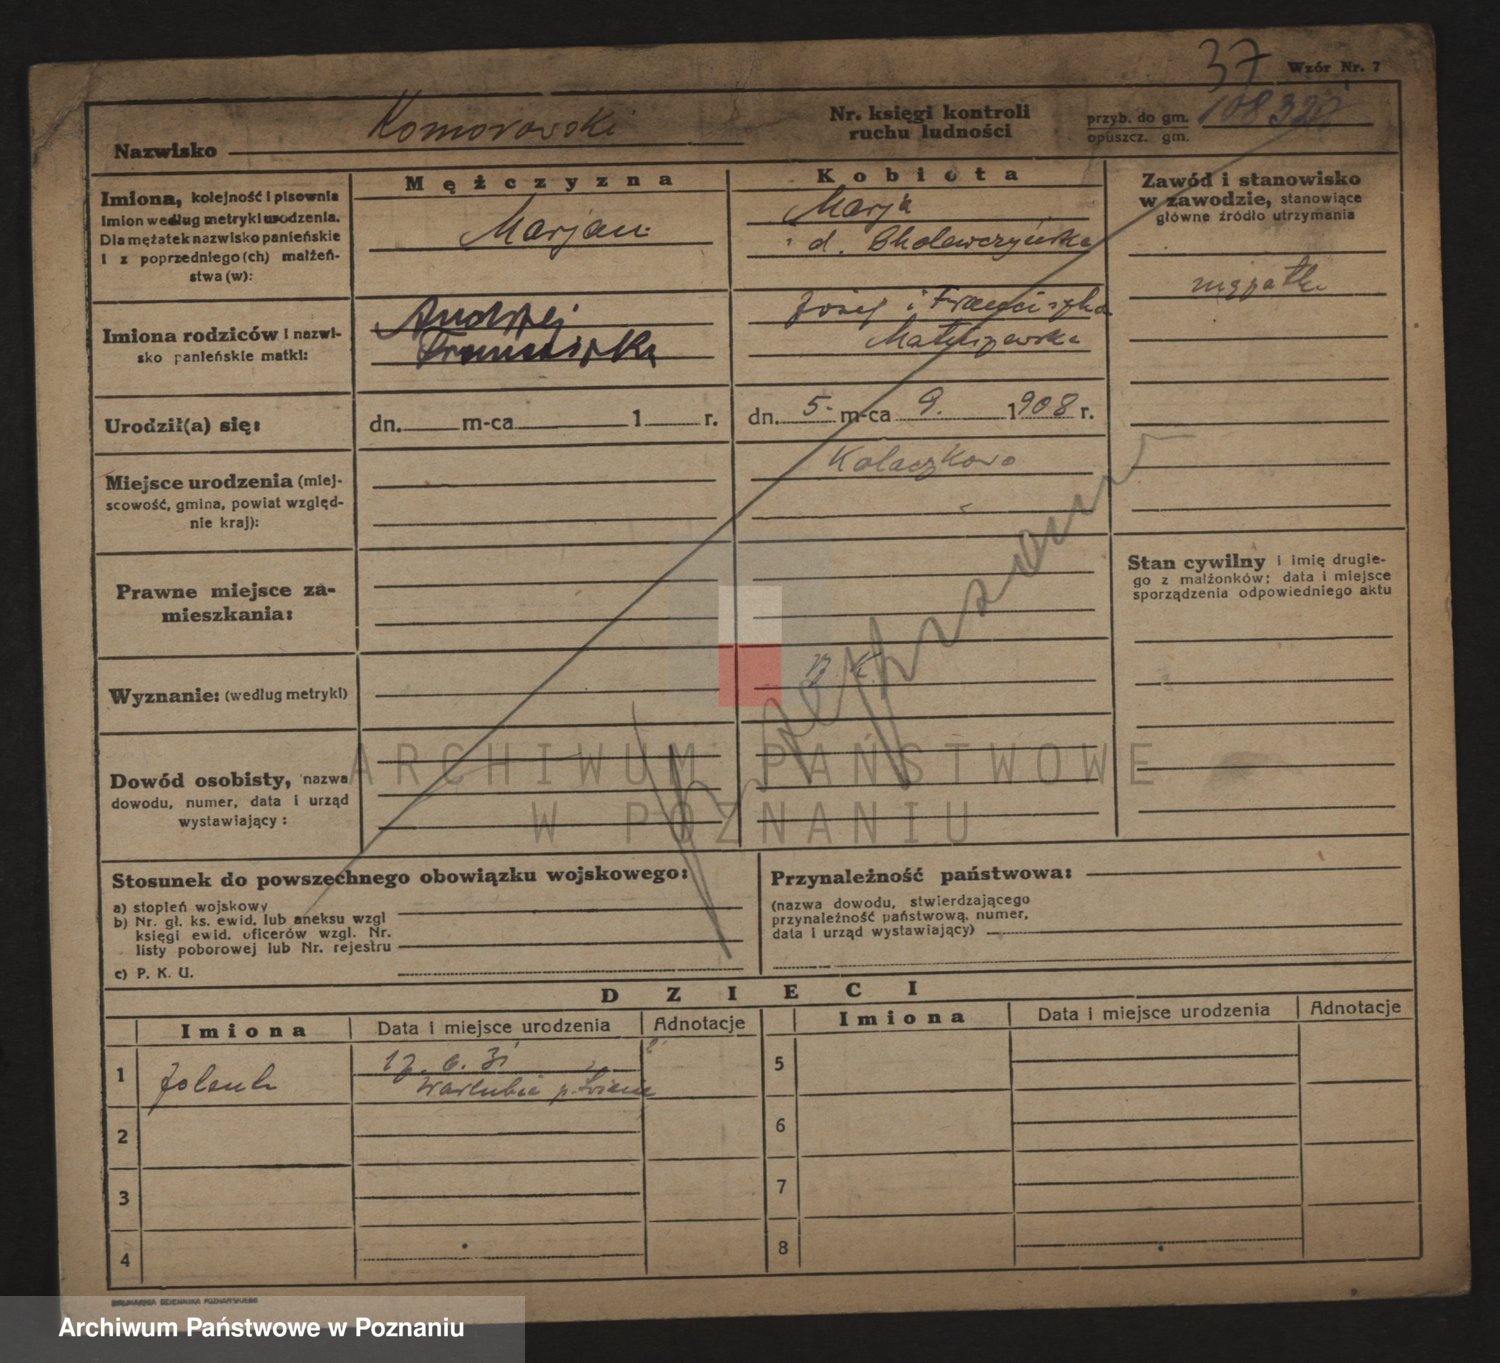 37
Wzór Nr. 7
Nazwisko Komorowski
Nr. księgi kontroli
ruchu ludności
przyb. do gm.
opuszcz. gm.
Mężczyzna
Kobieta
Imiona, kolejność i pisownia
imion według metryki urodzenia.
Dla mężatek nazwisko panieńskie
i z poprzedniego (ch) małżeń-
stwa (w):
Marjan
Marja
Zawód i stanowisko
w zawodzie, stanowiące
główne źródło utrzymania
Imiona rodziców i nazwi-
sko panieńskie matki:
Andrzej
Franciszka
Józef i Franciszka
Urodził(a) się:
dn. m-ca 1 r.
dn. 5. m-ca 9. 1908 r.
Miejsce urodzenia (miej-
scowość, gmina, powiat względ-
nie kraj):
Kołaczkowo
Prawne miejsce za-
mieszkania:
Stan cywilny i imię drugie-
go z małżonków; data i miejsce
sporządzenia odpowiedniego aktu
Wyznanie: (według metryki)
Dowód osobisty, nazwa
dowodu, numer, data i urząd
wystawiający:
ARCHIWUM PAŃSTWOWE
W POZNANIU
Stosunek do powszechnego obowiązku wojskowego:
a) stopień wojskowy
b) Nr. gł. ks. ewid. lub aneksu wzgl
księgi ewid. oficerów wzgl. Nr.
listy poborowej lub Nr. rejestru
c) P. K. U.
Przynależność państwowa:
(nazwa dowodu, stwierdzającego
przynależność państwową, numer,
data i urząd wystawiający)
DZIECI
Imiona
Data i miejsce urodzenia
Adnotacje
Imiona
Data i miejsce urodzenia
Adnotacje
1
17. 6. 31
Warlubie
2
3
4
5
6
7
8
DRUKARNIA DZIENNIKA POZNAŃSKIEGO
Archiwum Państwowe w Poznaniu